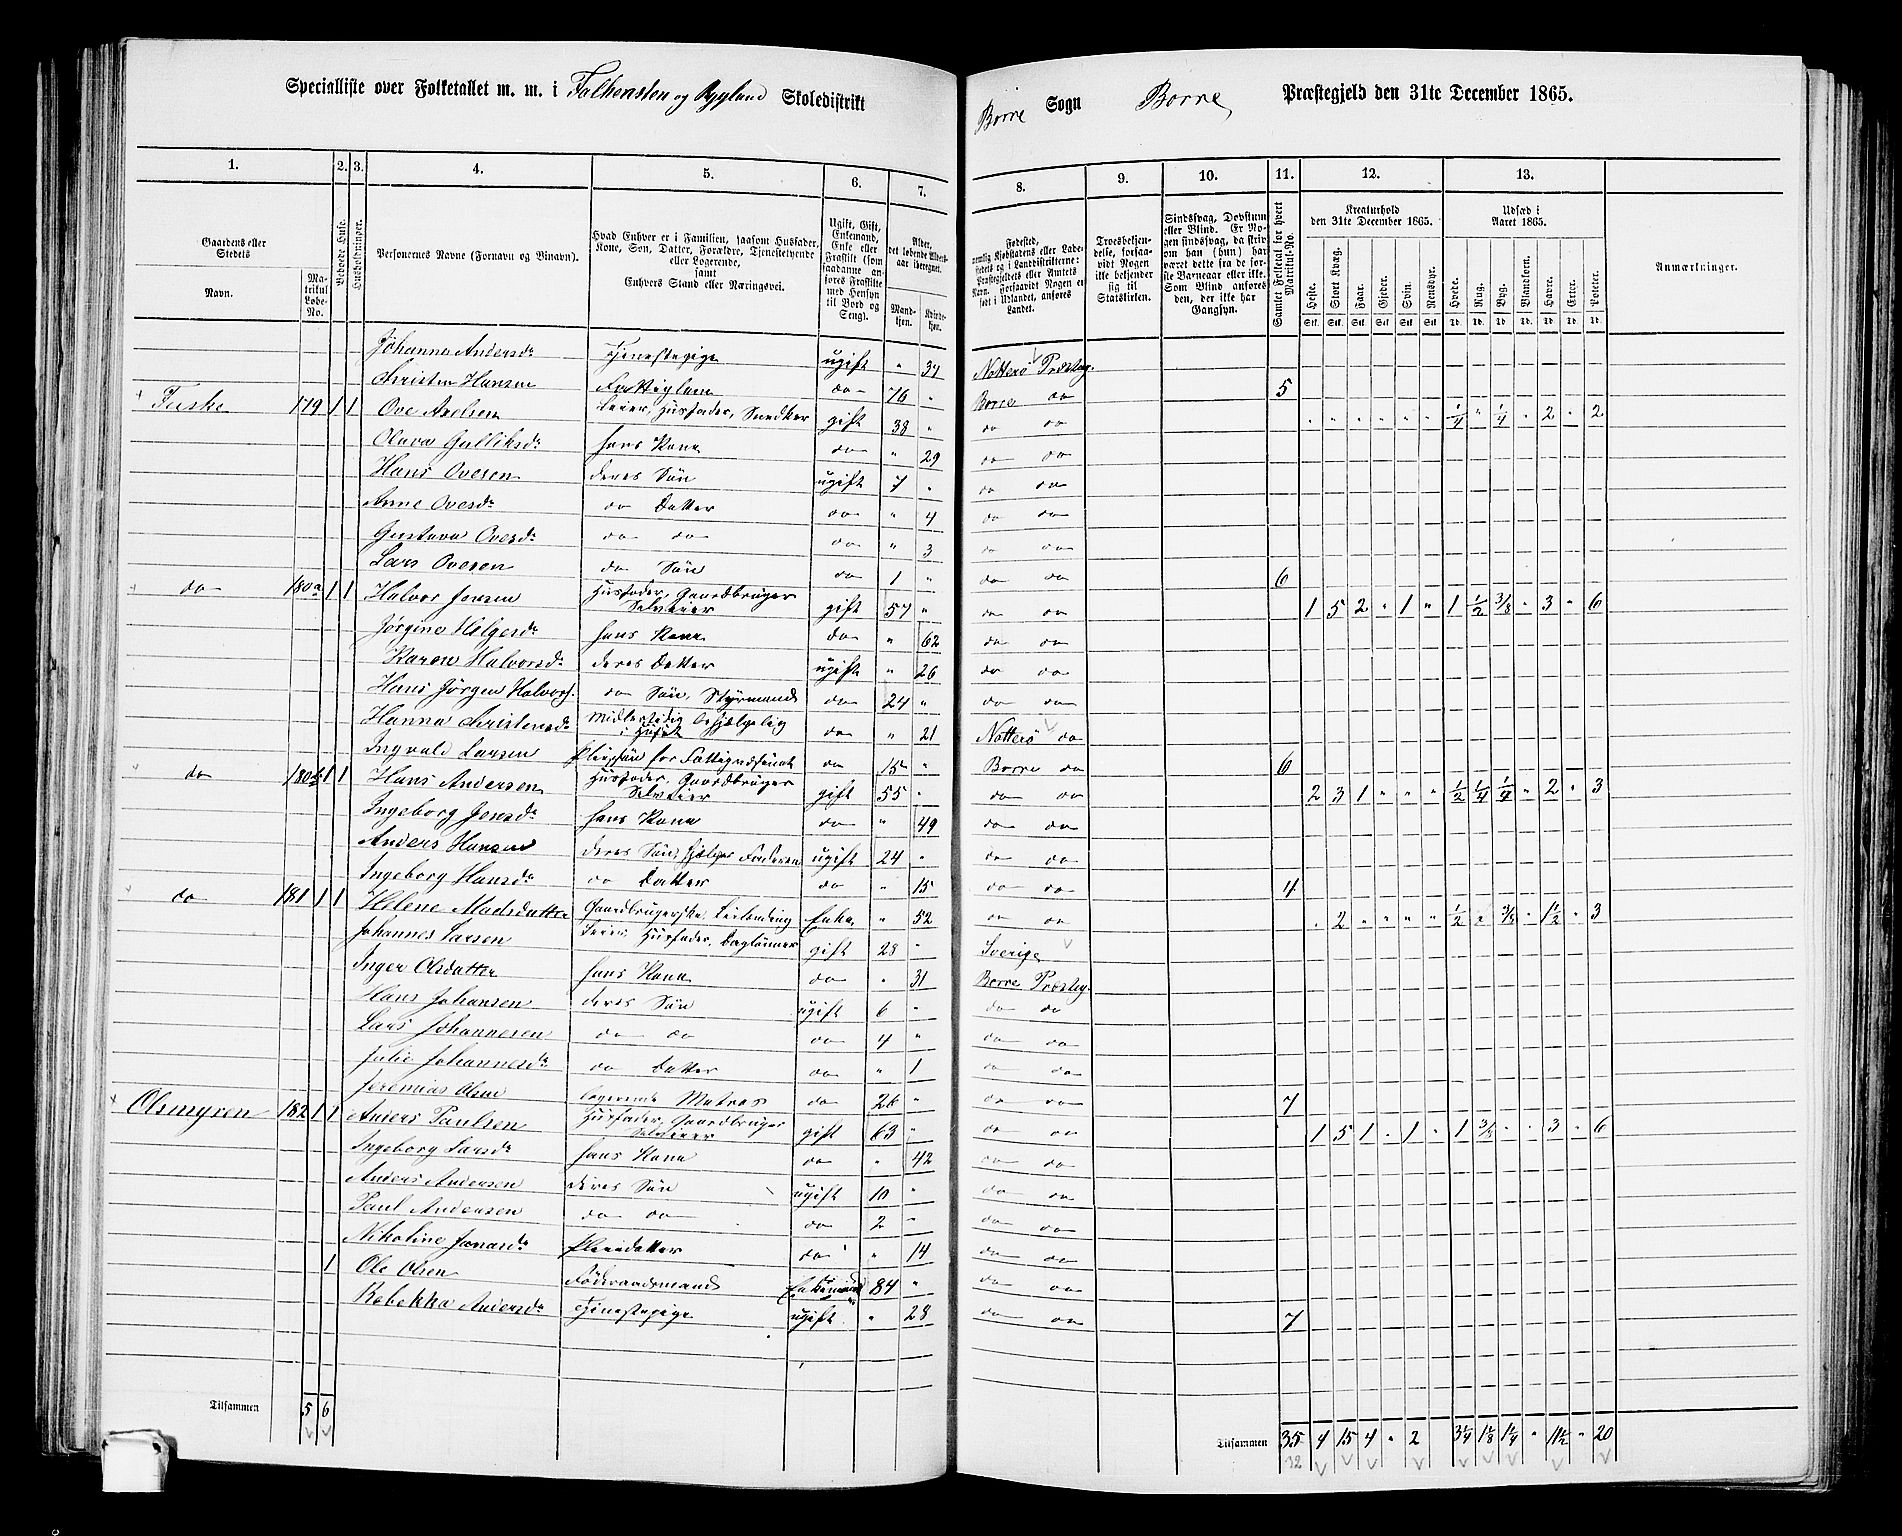 Specialliste over Folketallet m. m. i Falkensten og Rygland Skoledistrikt
Borre Sogn Borre Præstegjeld den 31te December 1865.
1. 2. 3. 4. 5. 6. 7. 8. 9. 10. 11. 12. 13.
Gaardens eller Stedets Navn. Matrikul Løbe-No. Beboede Huse. Husholdninger. Personernes Navne (Fornavn og Tilnavn).
Hvad Enhver er i Familien, saasom Husfader, Kone, Søn, Datter, Forældre, Tjenestetyende eller Logerende, samt Enhvers Stand eller Næringsvei.
Ugift, Gift, Enkemand, Enke eller Fraskilt (som saadanne anføres Fraskilte med Hensyn til Bord og Seng).
Alder, det løbende Alders-aar iberegnet. Mandkjøn. Kvindekjøn.
Troesbekjendelse, forsaavidt Nogen ikke bekjender sig til Statskirken.
Kreaturhold den 31te December 1865. Heste. Stort Kvæg. Faar. Gjeder. Svin. Rensdyr.
Udsæd i Aaret 1865. Hvede. Rug. Byg. Blandkorn. Havre. Erter. Poteter.
Anmærkninger.
Johanna Andersdr Tjenestepige ugift " 37 Nøtterø Præsteg.
Christen Hansen Fattiglem do 76 " Borre do 5
Fuske 179 1 1 Ove Axelsen Leier, Husfader, Snedker gift 38 " do do 1/4 " 1/4 " 2 " 2
Olava Gulliksdr hans Kone do " 29 do do
Hans Ovesen deres Søn ugift 7 " do do
Anne Ovesdr do Datter do " 4 do do
Gustava Ovesdr do do do " 3 do do
Lars Ovesen do Søn do 1 " do do 6
do 180a 1 1 Halvor Jensen Husfader, Gaardbruger Selveier gift 57 " do do 1 5 2 " 1 " 1 1/2 3/8 " 3 " 6
Jørgine Helgesdr hans Kone do " 62 do do
Karen Halvorsdr deres Datter ugift " 26 do do
Hans Jørgen Halvors. do Søn, Styrmand do 24 " do do
Hanna Christensdr Midlertidig behjælpelig i Huset do " 21 Nøtterø do
Ingvald Larsen Pleiesøn for Fattigvæsenet do 15 " Borre do 6
do 180b 1 1 Hans Andersen Husfader, Gaardbruger Selveier gift 55 " do do 2 3 1 " " " 1/2 1/4 1/4 " 2 " 3
Ingeborg Jensdr hans Kone do " 49 do do
Anders Hansen deres Søn, hjelper Faderen ugift 24 " do do
Ingeborg Hansdr do Datter do " 15 do do 4
do 181 1 1 Helene Madsdatter Gaardbrugerske, Leilending Enke " 52 do do " 2 " " " " 1/2 " 3/8 " 1 1/2 " 3
Johannes Larsen Leier, Husfader, Dagleiner gift 28 " Sverige
Inger Olsdatter hans Kone do " 31 Borre Præsteg.
Hans Johansen deres Søn ugift 6 " do do
Lars Johannesen do do do 4 " do do
Julie Johannesdr do Datter do " 1 do do
Jeremias Olsen logerende Matros do 26 " do do 7
Olsmyren 182 1 1 Anders Paulsen Husfader, Gaardbruger Selveier gift 63 " do do 1 5 1 " 1 " 1 3/8 " " 3 " 6
Ingeborg Larsdr hans Kone do " 42 do do
Anders Andersen deres Søn ugift 10 " do do
Paul Andersen do do do 2 " do do
Nikoline Jonasdr Pleiedatter do " 14 do do
1 Ole Olsen Føderaadsmand Enkemand 84 " do do
Rebekka Andersdr Tjenestepige ugift " 28 do do 7
Tilsammen 5 6
Tilsammen 35 4 15 4 " 2 3 1/4 1 1/8 1 1/4 " 11 1/2 " 20
32